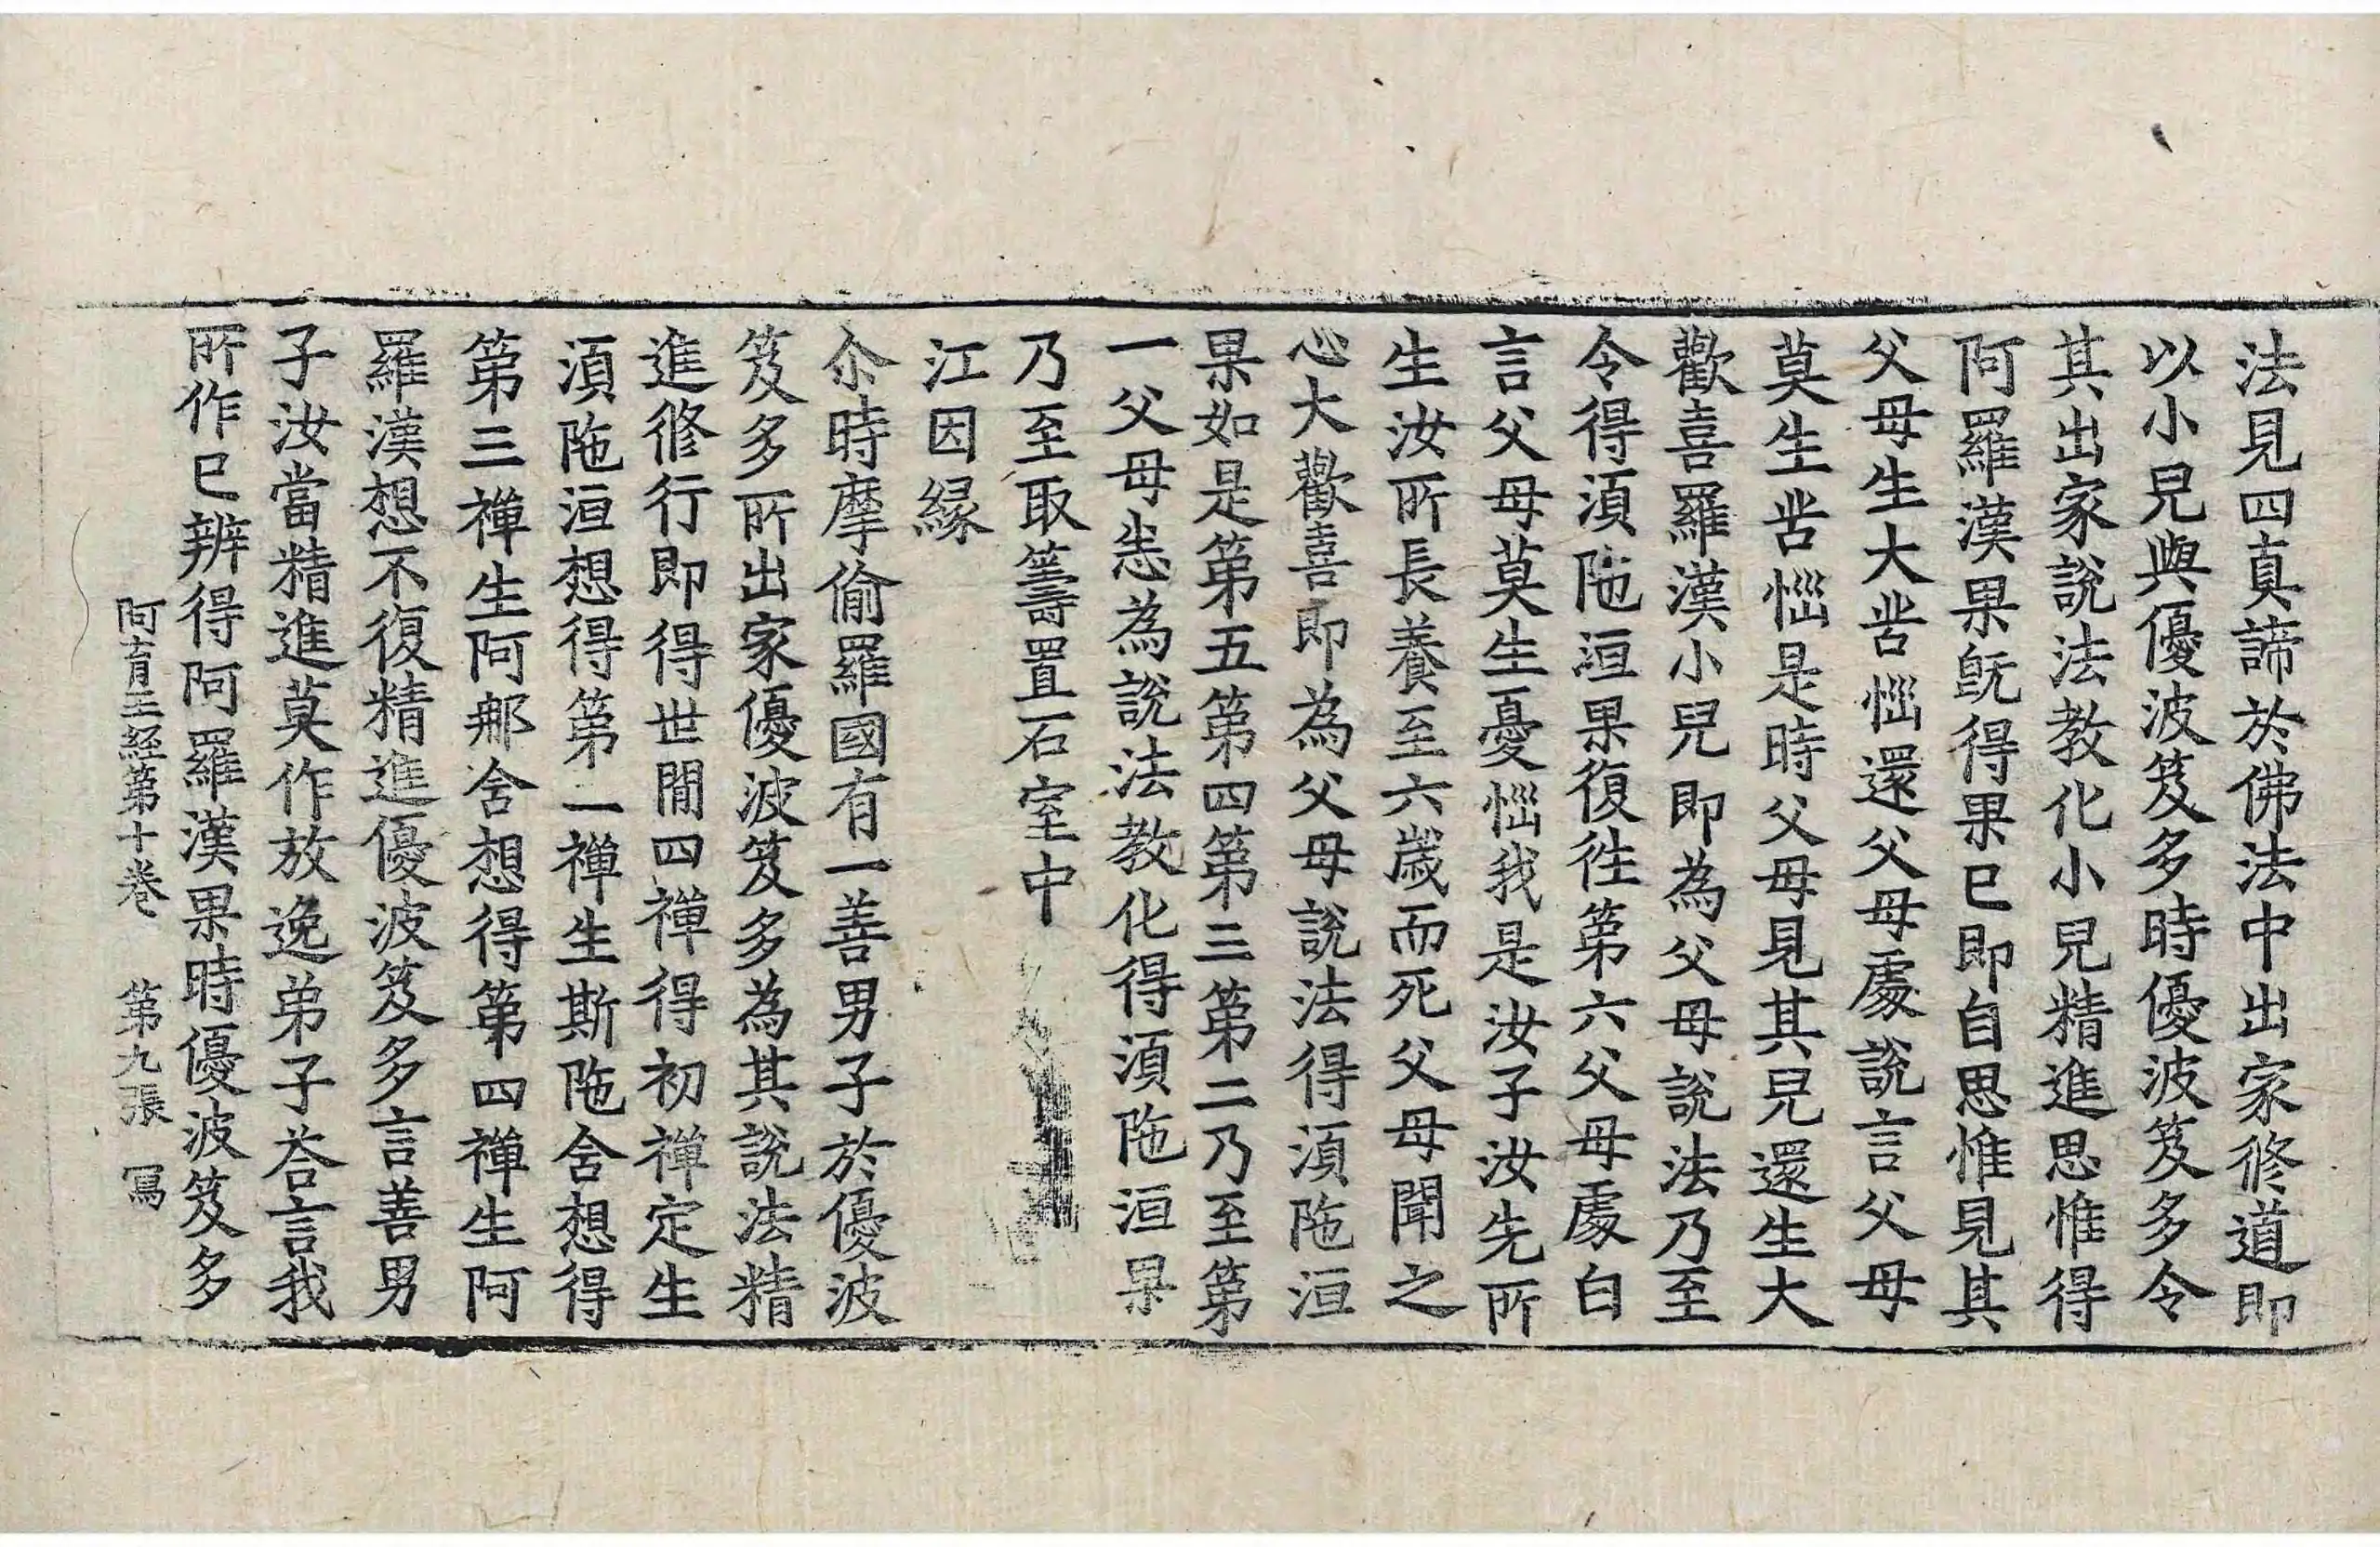 法見四真諦於佛法中出家修道即
以小兒與優波笈多時優波笈多令
其出家說法教化小兒精進思惟得
阿羅漢果旣得果已即自思惟見其
父母生大苦惱還父母處說言父母
莫生苦惱是時父母見其兒還生大
歡喜羅漢小兒即為父母說法乃至
令得湏陁洹果復往第六父母處白
言父母莫生憂惱我是汝子汝先所
生汝所長養至六歲而死父母聞之
心大歡喜即為父母說法得湏陁洹
果如是第五第四第三第二乃至第
一父母恚為說法教化得湏陁洹果
乃至取籌置石室中
江因緣
尒時摩偷羅國有一善男子於優波
笈多所出家優波笈多為其說法精
進修行即得世間四禪得初禪定生
湏陁洹想得第二禪生斯陁舍想得
第三禪生阿那舍想得第四禪生阿
羅漢想不復精進優波笈多言善男
子汝當精進莫作放逸弟子荅言我
所作已辨得阿羅漢果時優波笈多
阿育王經第十卷 第九張 冩